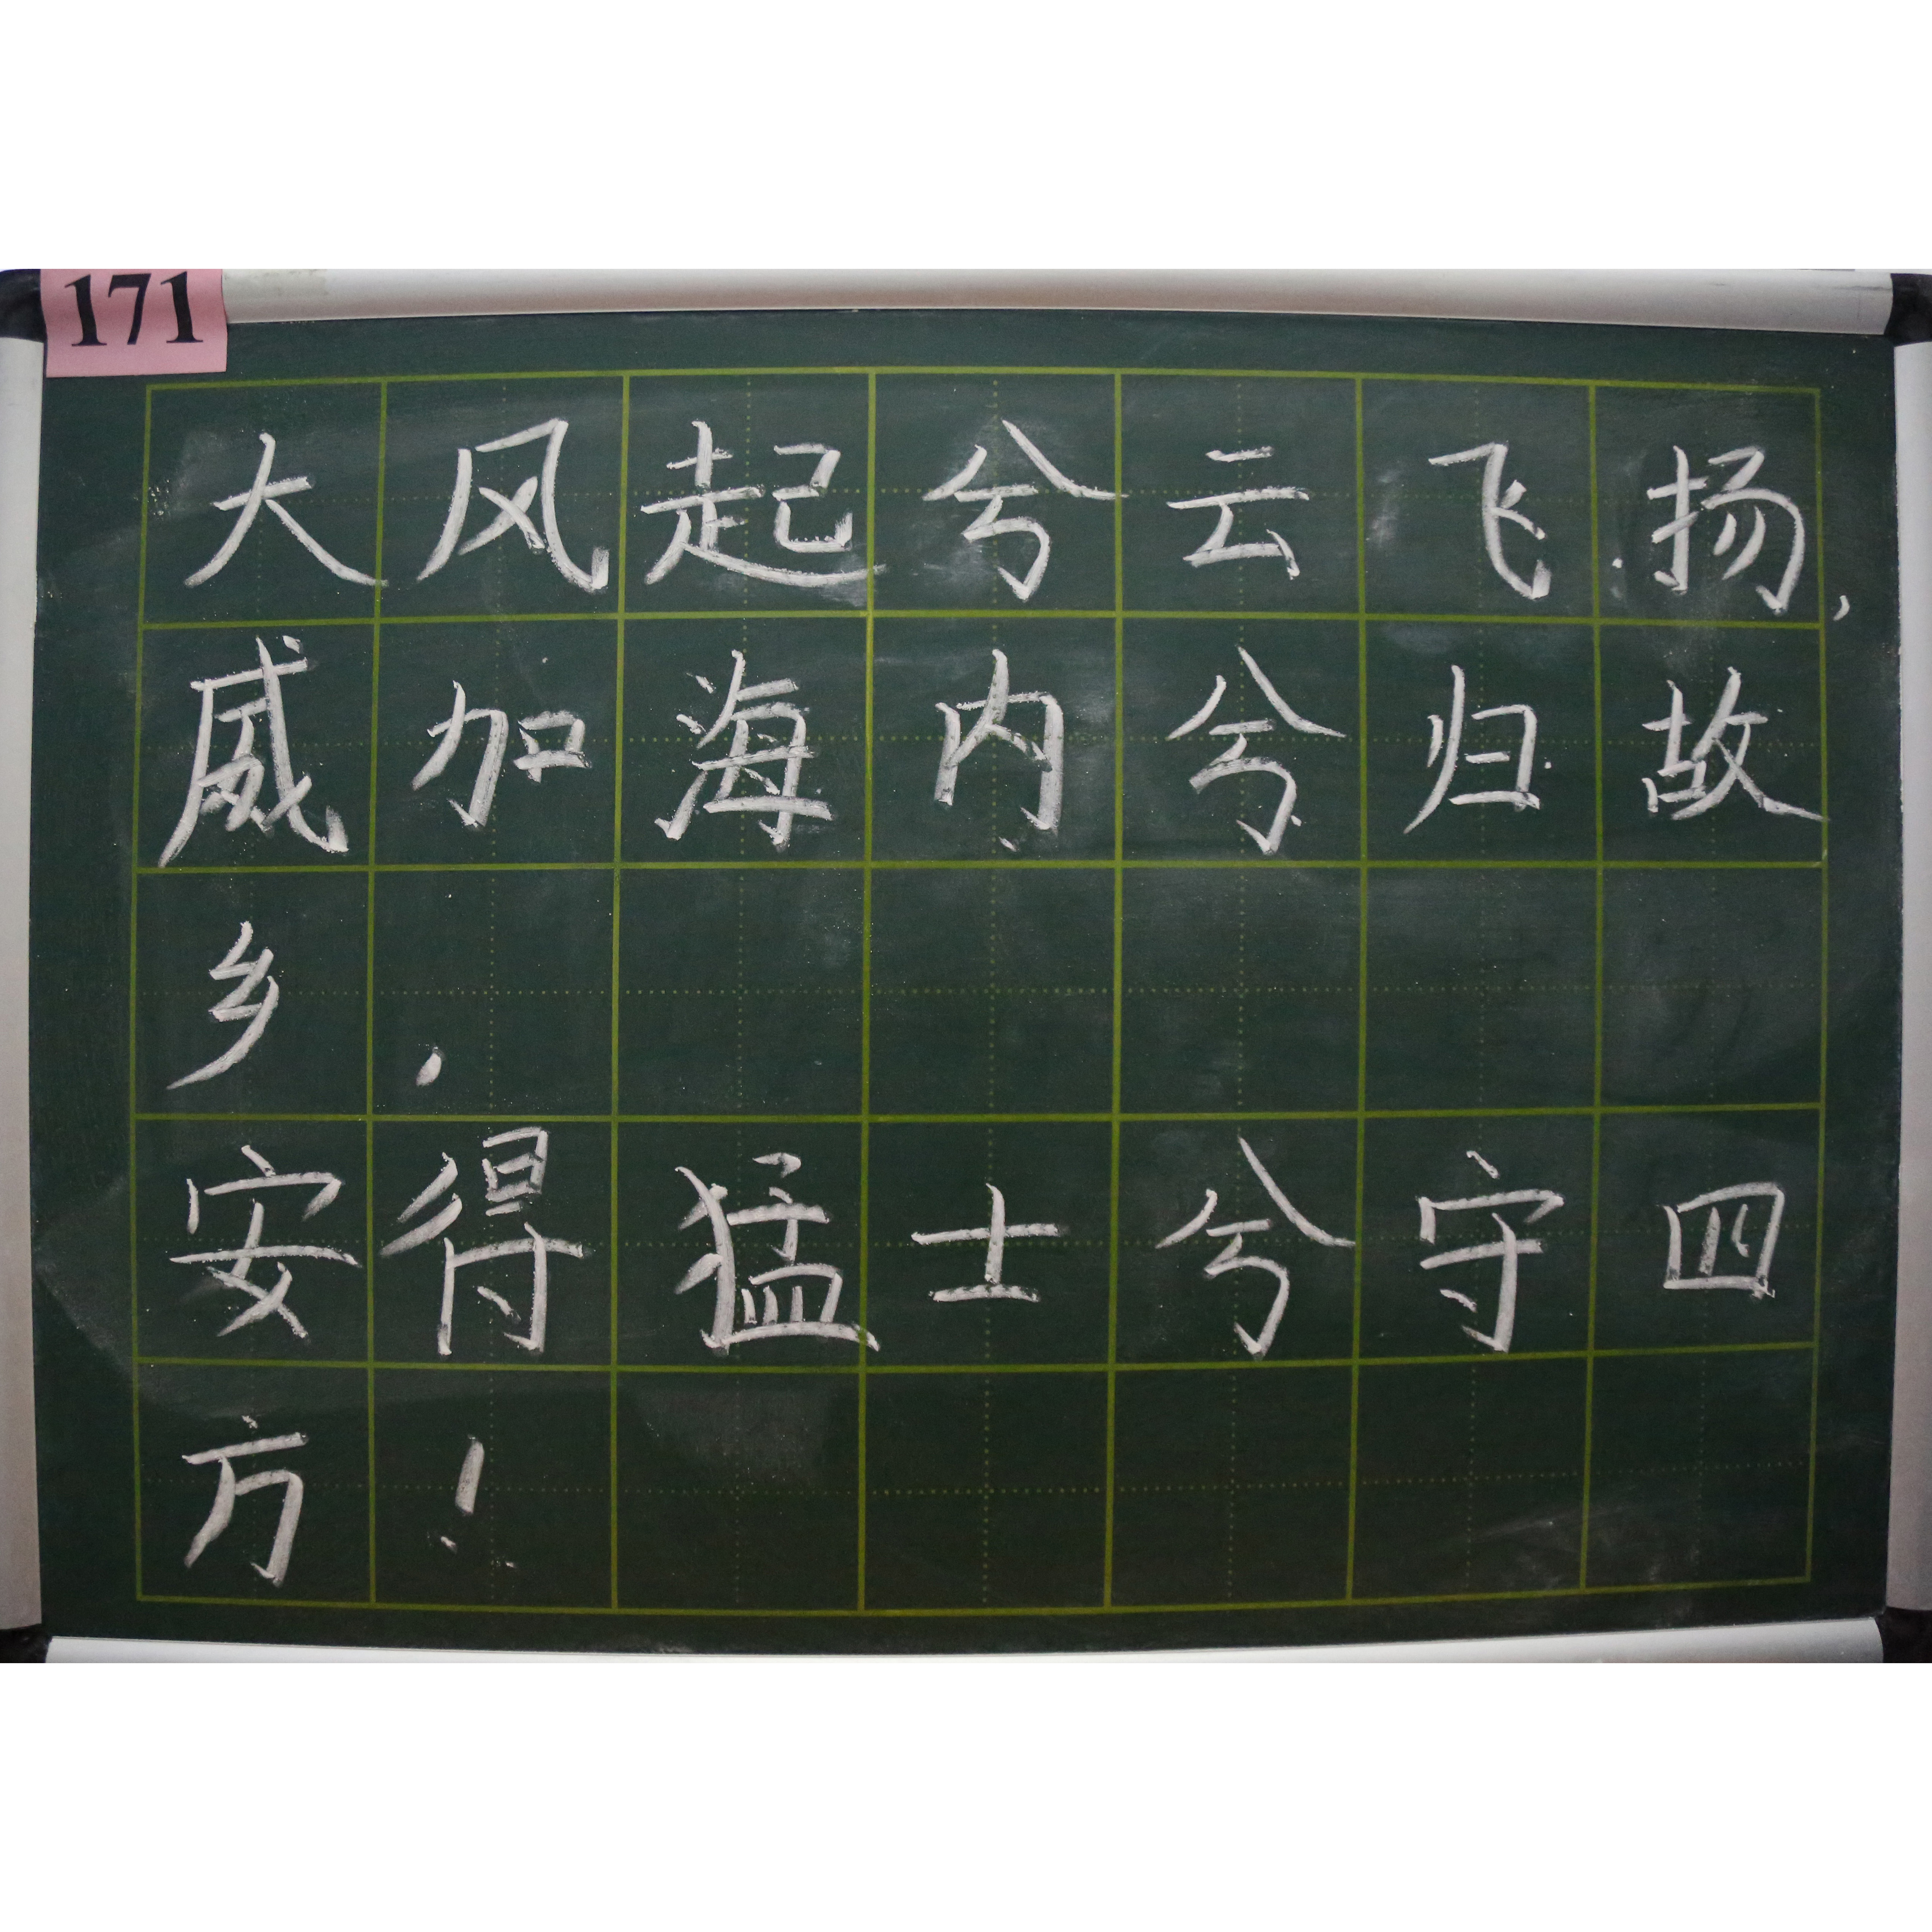 171
大风起兮云飞扬,
威加海内兮归故
乡,
安得猛士兮守四
方!